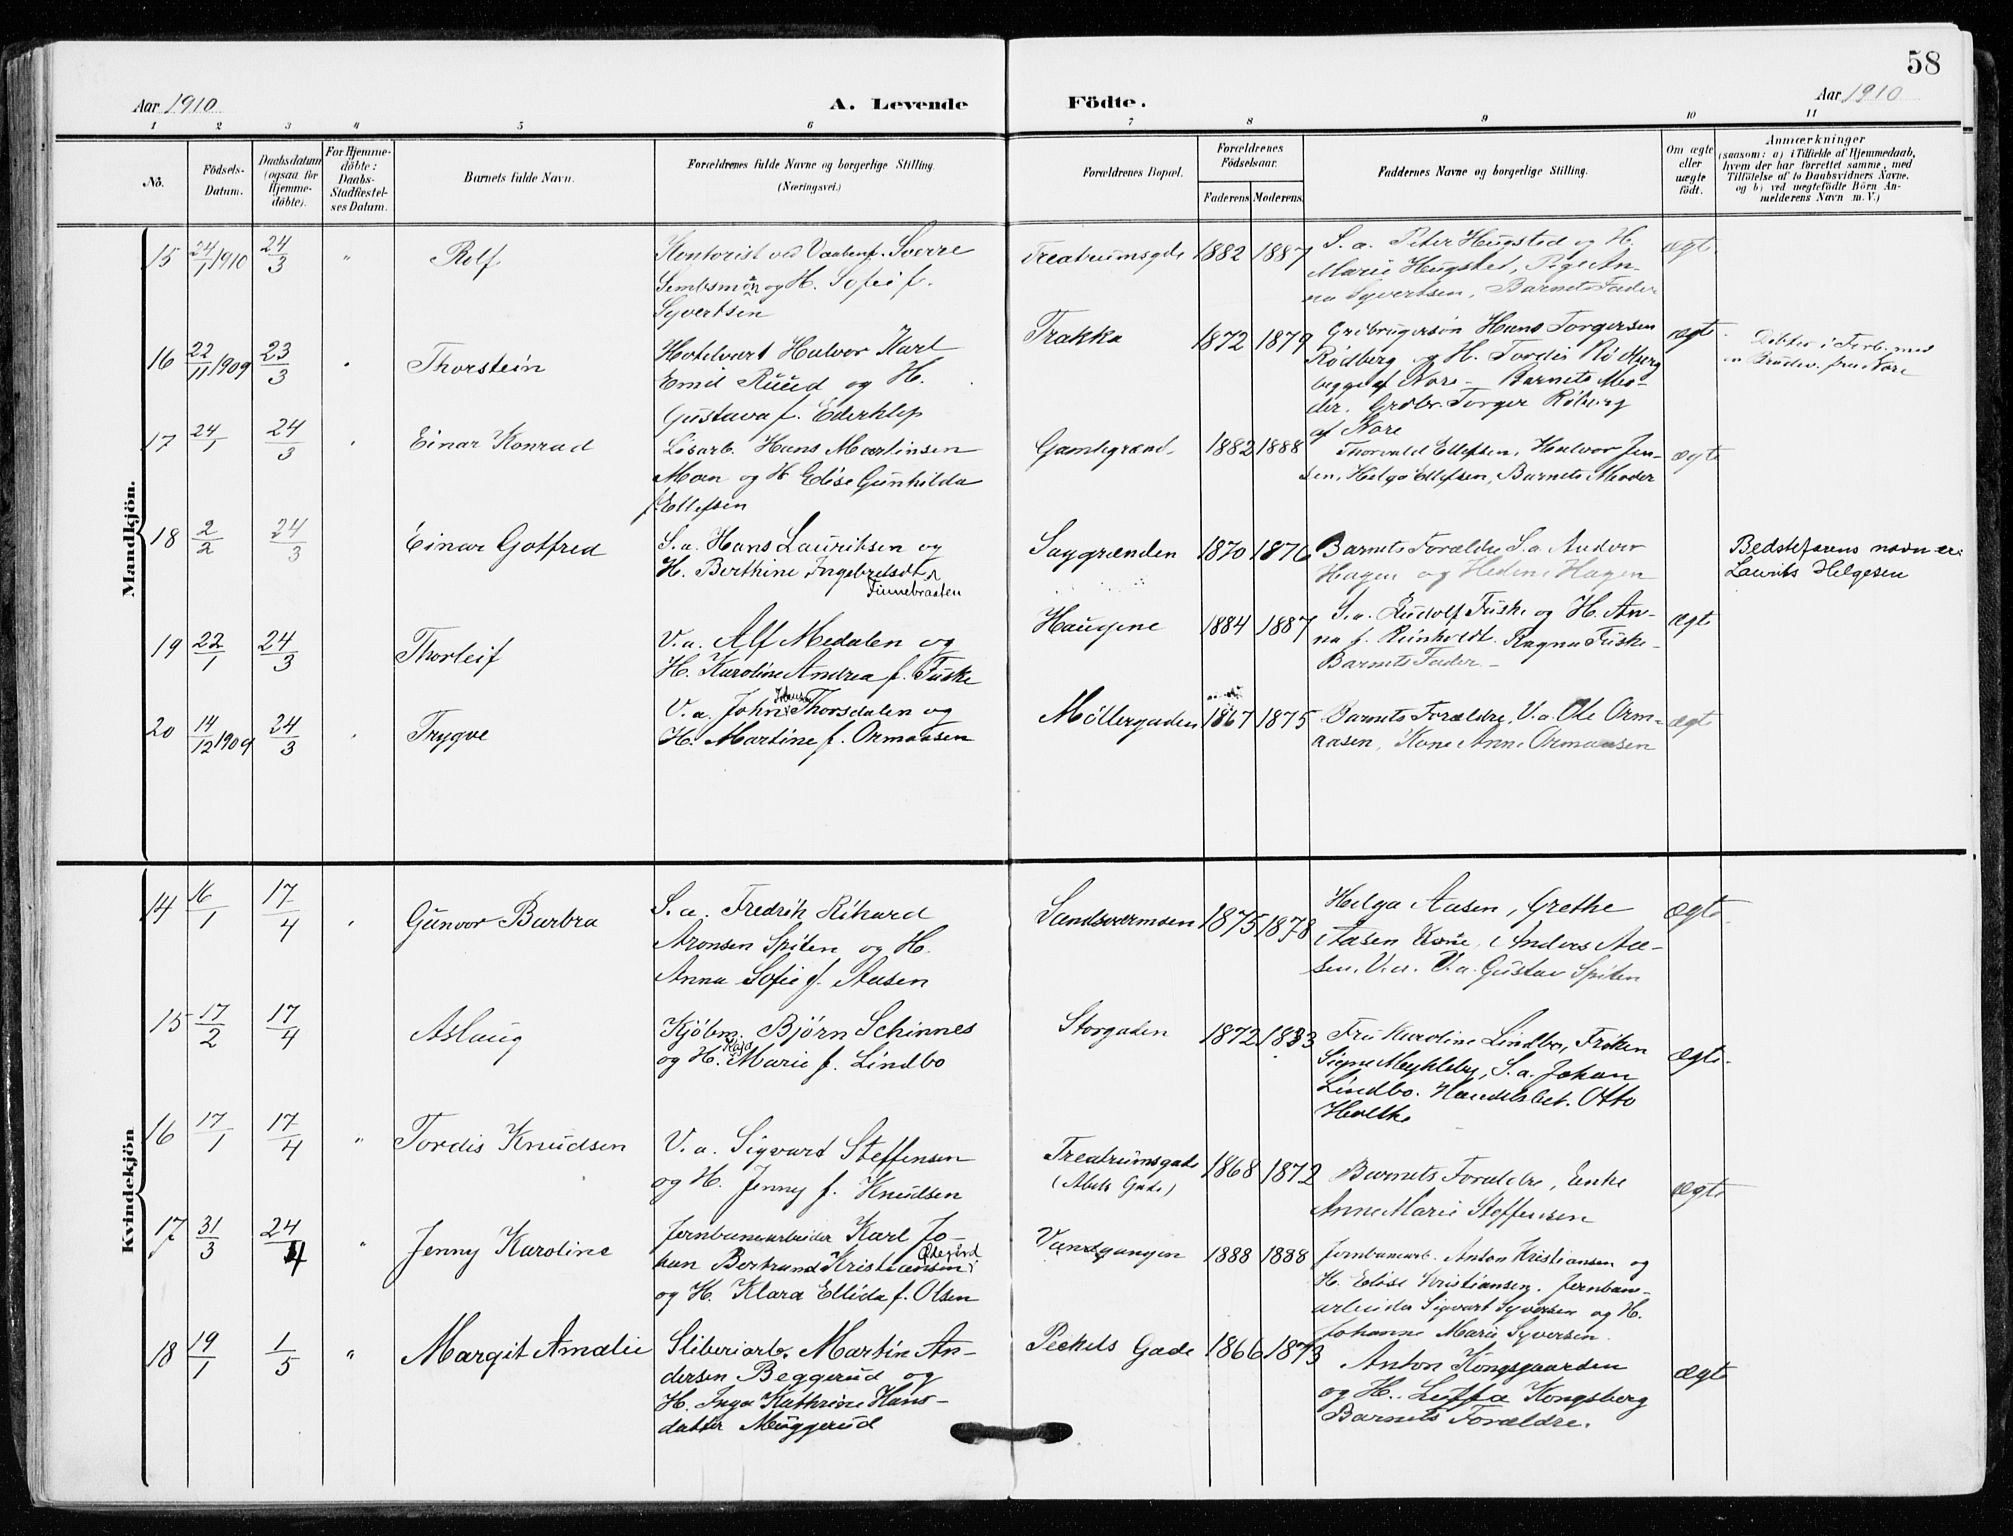 58
Aar 1910 A. Levende Födte. Aar 1910
1 2 3 4 5 6 7 8 9 10 11
No. Födsels-Datum. Daabsdatum (ogsaa for Hjemme-döbte). For Hjemme-döbte: Daabs-Stadfæstel-ses Datum. Barnets fulde Navn. Forældrenes fulde Navne og borgerlige Stilling. (Næringsvei.) Forældrenes Bopæl. Forældrenes Födselsaar. Faderens Moderens. Faddernes Navne og borgerlige Stilling. Om ægte eller uægte födt. Anmærkninger (saasom: a) i Tilfælde af Hjemmedaab, hvem der har forrettet samme, med Tilföielse af to Daabsvidners Navne, og b) ved uægtefödte Börn An-melderens Navn m. V.)
Mandkjön.
15 24/1 1910 24/3 " Rolf Kontorist ved Vaabenf. Sverre Treatrumsgde 1882 1887 S. a. Peter Hugsted og H. ægt.
Sembsmoen og H. Sofie f. Marie Hugsted, Pige An-
Syvertsen na Syvertsen, Barnets Fader
16 22/11 1909 23/3 " Thorstein Hotelvært Halvor Karl Trakka 1872 1879 Grdbrugersön Hans Torgersen ægt.
Emil Ruud og H. Rødberg og H. Tordis Rødberg
Gustava f. Ederklep begge af Nore - Barnets Mo-
der. Grdbr. Torger Røberg
af Nore
17 24/1 24/3 " Einar Konrad Lösarb. Hans Martinsen Gamlegrænd. 1882 1888 Thorvald Ellefsen, Halvor Jen- ægte
Moen og H. Elise Gunhilda sen, Helga Ellefsen, Barnets Moder
f. Ellefsen
18 2/2 24/3 Einar Gotfred S. a. Hans Lauritsen og Saggrænden 1870 1876 Barnets Forældre S. a. Anders Bedstefarens navn er:
H. Berthine Ingebretsdt. Hagen og Hagen Laurits Helgesen
Finnebraaten
19 22/1 24/3 Thorleif V. a. Alf Medalen og Haugene 1884 1887 S. a. Rudolf Fuske og H. An- ægte
H. Karoline Andrea f. Fuske na f. Reinholdt. Ragna Fuske-
Barnets Fader -
20 14/12 1909 24/3 " Trygve V. a. John Thorsdalen og Møllergaden 1867 1875 Barnets Forældre, V. a. Ole Orm- ægte
H. Martine f. Ormaasen aasen, Kone Anne Ormaasen
Kvindekjön
14 16/1 17/4 " Gunvor Barbra S. a. Fredrik Rihard Sandsværmoen 1875 1878 Helga Aasen, Grethe ægte
Aronsen Spiten og H. Aasen Kone, Anders Aa-
Anna Sofie f. Aasen sen, V. a. V. a. Gustav Spiten
15 17/2 17/4 Aslaug Kjöbm. Björn Schinnes Storgaden 1872 1883 Fru Karoline Lindbo, Fröken ægte.
og H. Kaja Marie f. Lindbo Signe Meykleby, S. a. Johan
Lindbo. Handelsbet. Otto
Holthe
16 17/1 17/4 " Tordis Knudsen V. a. Sigvart Steffensen Treatrumsgade 1868 1872 Barnets Forældre, Enke ægte
og H. Jenny f. Knudsen (Abels Gade) Anne Marie Steffensen
17 31/3 24/4 " Jenny Karoline Jernbanearbeider Karl Jo- Vandgangen 1888 1888 Jernbanearb. Anton Kristiansen og
han Bertrand Kristiansen Ødegård H. Elise Kristiansen. Jernbane-
og H. Klara Ellida f. Olsen arbeider Sigvart Syversen og H.
Johanne Marie Syversen.
18 19/1 1/5 " Margit Amalie Sliberiarb. Martin An- Peckels Gade 1866 1873 Anton Kongsgaarden ægte
dersen Beggerud og og H. Kongsberg
H. Inga Kathrine Hans- Barnets Forældre.
datter Muggerud